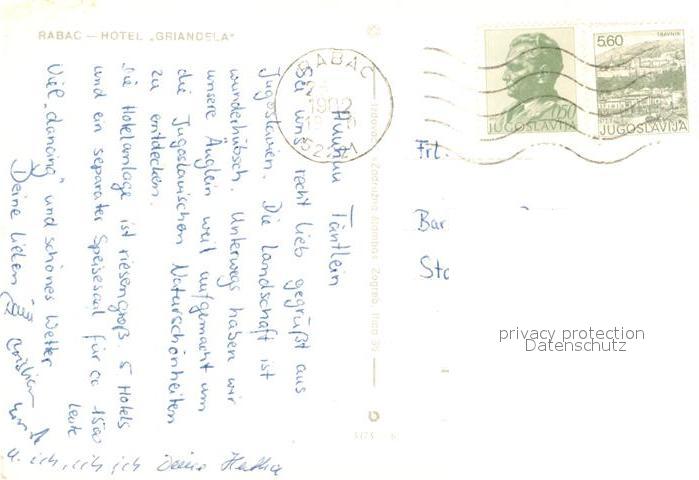 RABAC — HOTEL „GRIANDELA“
Huuhuu Täntlein
Sei uns recht lieb gegrüßt aus
Jugoslawien. Die Landschaft ist
wunderhübsch. Unterwegs haben wir
unsere Äuglein weit aufgemacht um
die Jugoslawischen Naturschönheiten
zu entdecken.
Die Hotelanlage ist riesengroß. 5 Hotels
und ein separater Speisesaal für ca 1500
Leute
Viel „dancing“ und schönes Wetter
Deine lieben
u. ich, ich, ich Deine
RABAC
52221
0,50
JUGOSLAVIJA
TRAVNIK
5,60
JUGOSLAVIJA
Frl.
Bar
Sta
privacy protection
Datenschutz